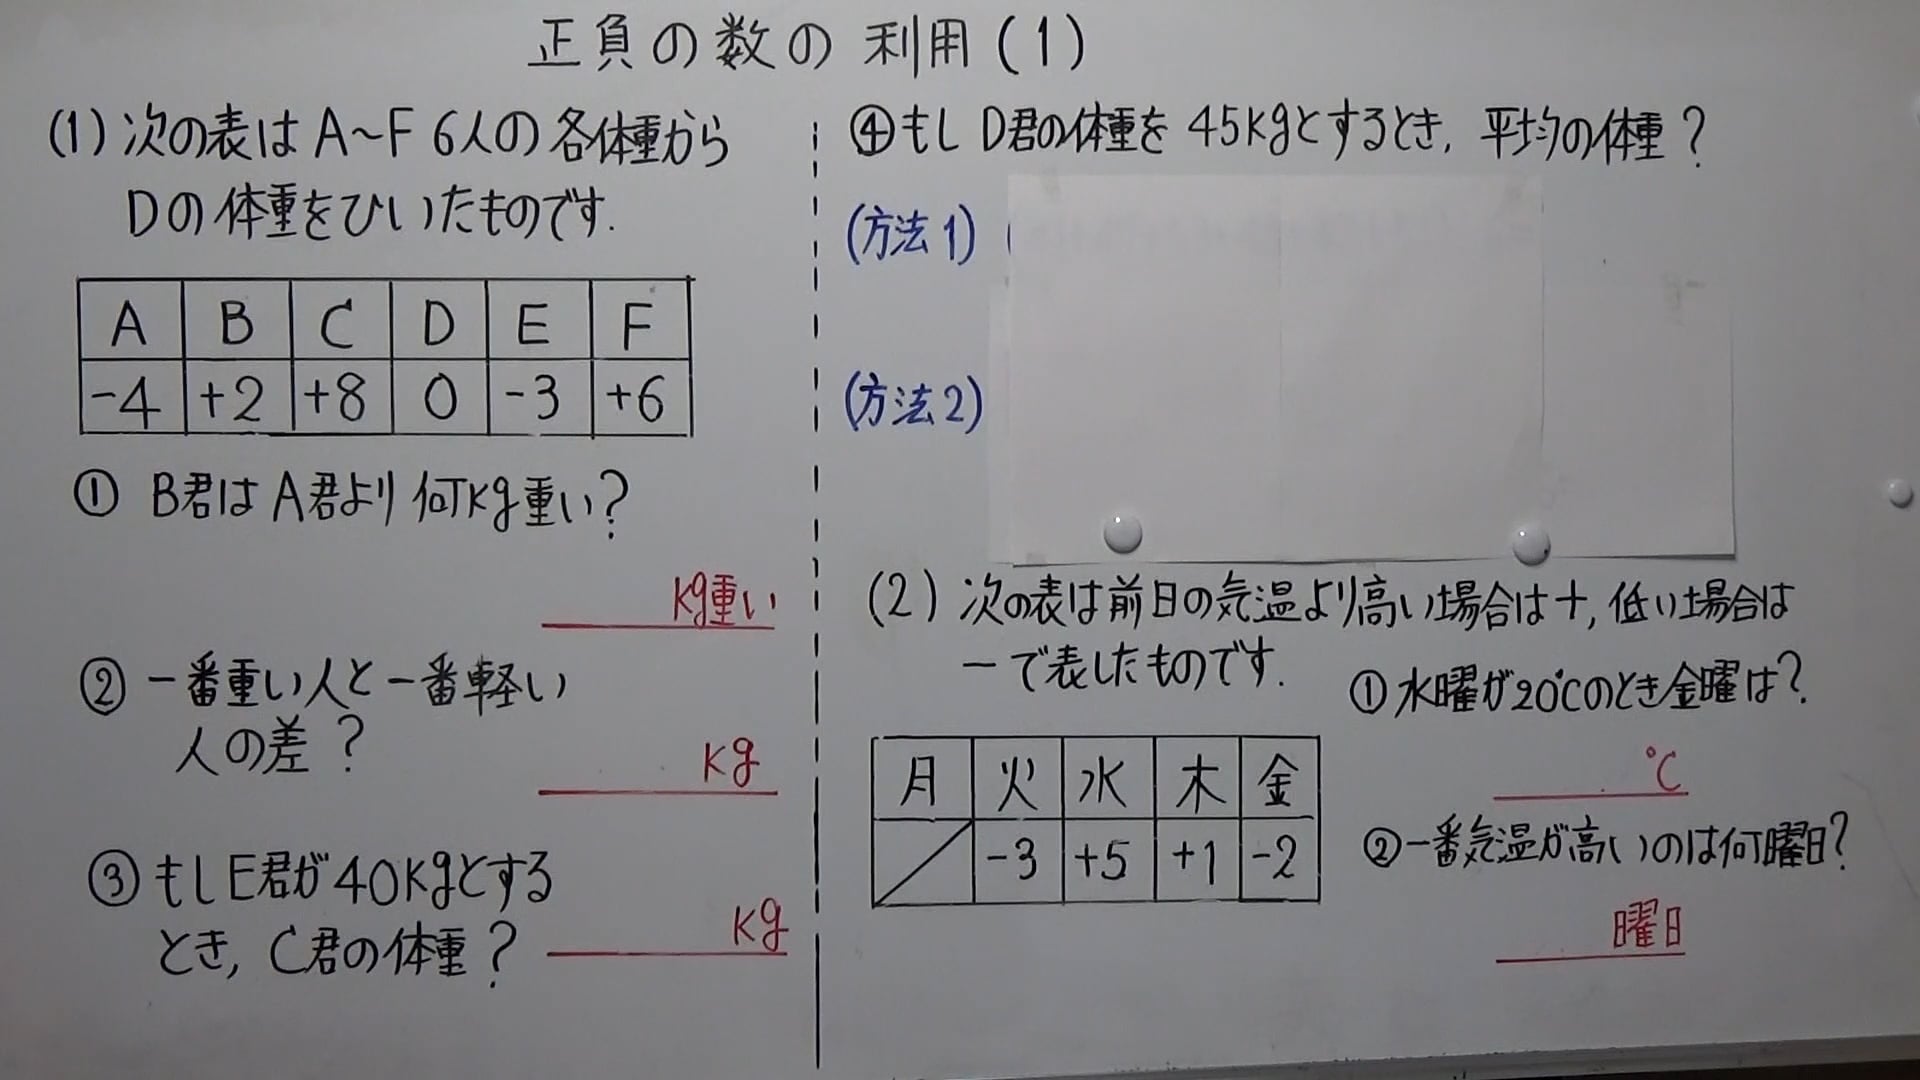 正負の数の利用(1)
(1)次の表はA~F 6人の各体重から
Dの体重をひいたものです.
A B C D E F
-4 +2 +8 0 -3 +6
① B君はA君より何kg重い?
kg重い
② 一番重い人と一番軽い
人の差?
kg
③ もしE君が40kgとする
とき, C君の体重?
kg
④もしD君の体重を45kgとするとき, 平均の体重?
(方法1)
(方法2)
(2) 次の表は前日の気温より高い場合は+, 低い場合は
-で表したものです.
月 火 水 木 金
-3 +5 +1 -2
①水曜が20℃のとき金曜は?
℃
②一番気温が高いのは何曜日?
曜日